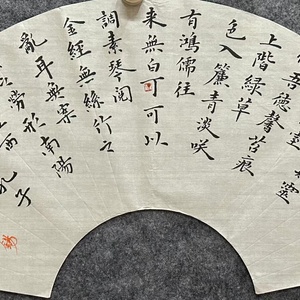 室
靈
吾德馨苔痕
上階緑草
色入簾青淡咲
有鴻儒往
来無白可可以
調素琴閱
金經無絲竹之
亂耳無案
形南陽
西
孔子